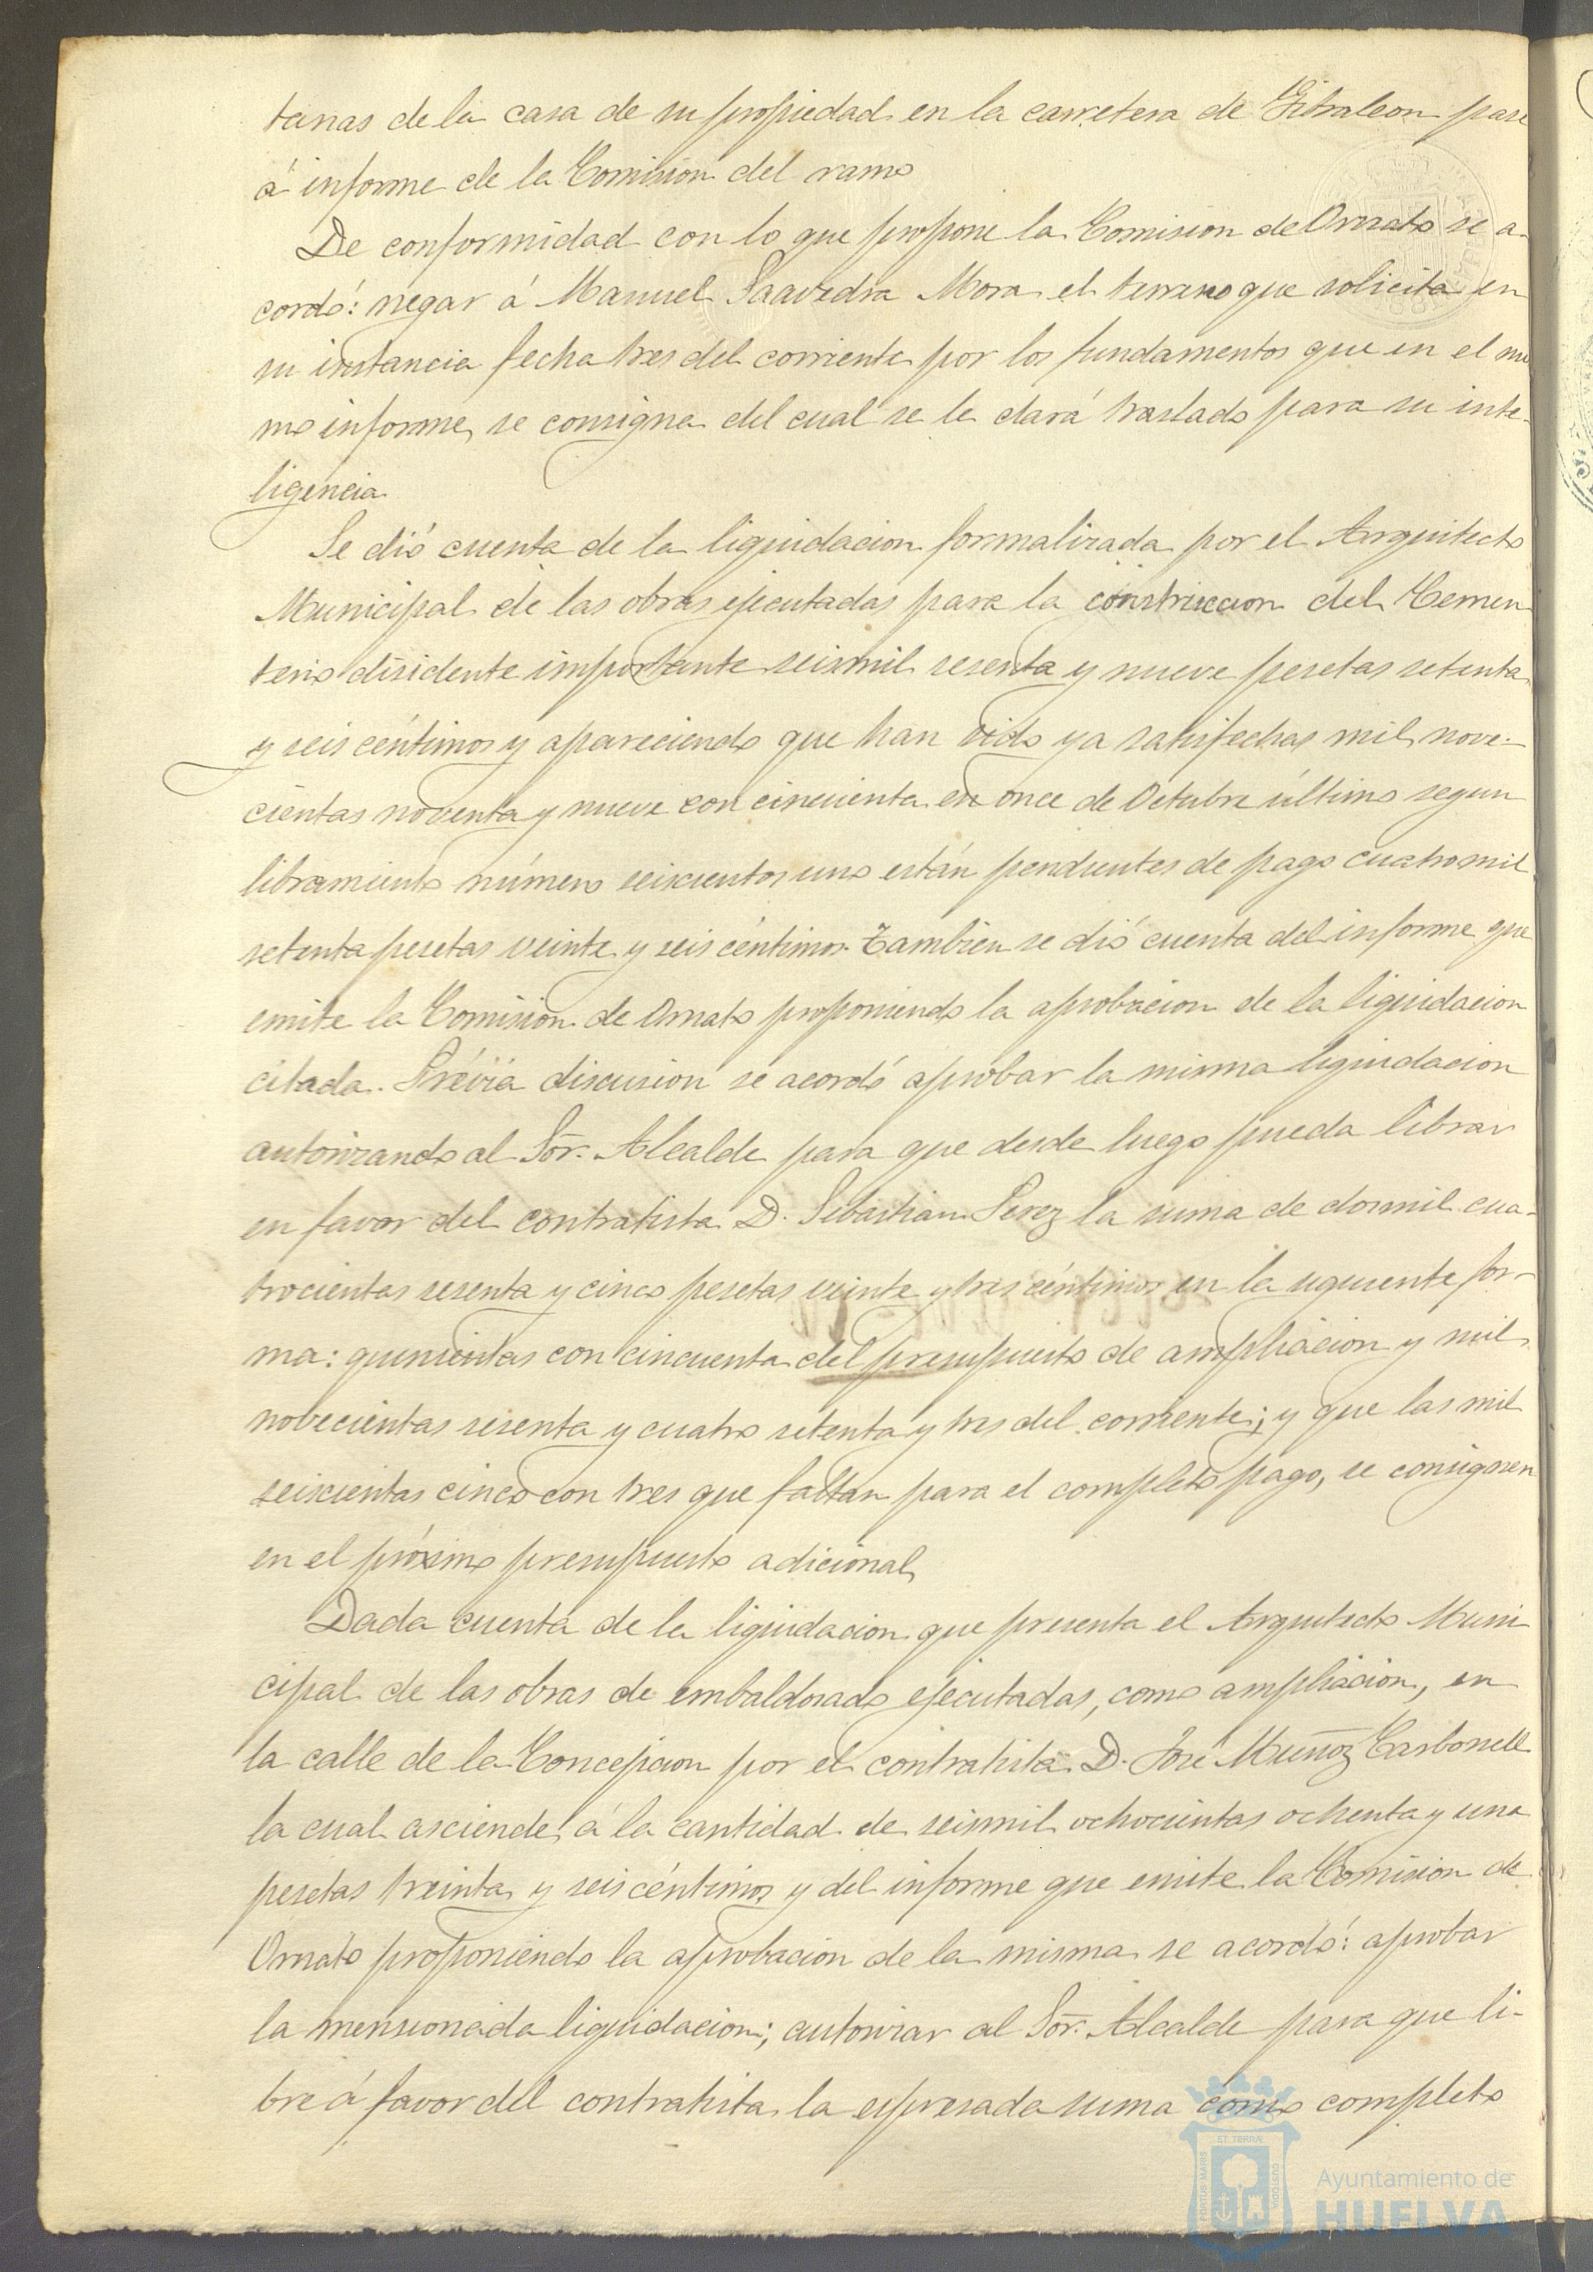 tanas de la casa de su propiedad en la carretera de Gibraleon pase
á informe de la Comision del ramo
De conformidad con lo que propone la Comision de Ornato se a-
cordó: negar á Manuel Saavedra Mora el terreno que solicita en
su instancia fecha tres del corriente por los fundamentos que en el mis
mo informe, se consigna del cual se le dará traslado para su inte-
ligencia
Se dió cuenta de la liquidacion formalizada por el Arquitecto
Municipal de las obras ejecutadas para la construccion del Cemen
terio disidente importante seismil sesenta y nueve pesetas setenta
y seis céntimos y apareciendo que han sido ya satisfechas mil nove-
cientas noventa y nueve con cincuenta en once de Octubre último segun
libramiento número seiscientos uno están pendientes de pago cuatromil
setenta pesetas veinte y seis céntimos. Tambien se dió cuenta del informe que
emite la Comision de Ornato proponiendo la aprobacion de la liquidacion
citada. Prévia discusion se acordó aprobar la misma liquidacion
autorizando al Sōr. Alcalde para que desde luego pueda librar
en favor del contratista D. Sebastian Perez la suma de dosmil cua-
trocientas sesenta y cinco pesetas veinte y tres céntimos en la siguiente for-
ma: quinientas con cincuenta del presupuesto de ampliacion y mil
novecientas sesenta y cuatro setenta y tres del corriente; y que las mil
seiscientas cinco con tres que faltan para el completo pago, se consignen
en el próximo presupuesto adicional
Dada cuenta de la liquidacion que presenta el Arquitecto Muni
cipal de las obras de embaldosado ejecutadas, como ampliacion, en
la calle de la Concepcion por el contratista D. José Muñoz Carbonell
la cual asciende á la cantidad de seismil ochocientas ochenta y una
pesetas treinta y seis céntimos y del informe que emite la Comision de
Ornato proponiendo la aprobacion de la misma se acordó: aprobar
la mensionada liquidacion; autorizar al Sōr. Alcalde para que li-
bre á favor del contratista la espresada suma como completo
PORTUS MARIS
ET TERRÆ
CUSTODIA
Ayuntamiento de
HUELVA